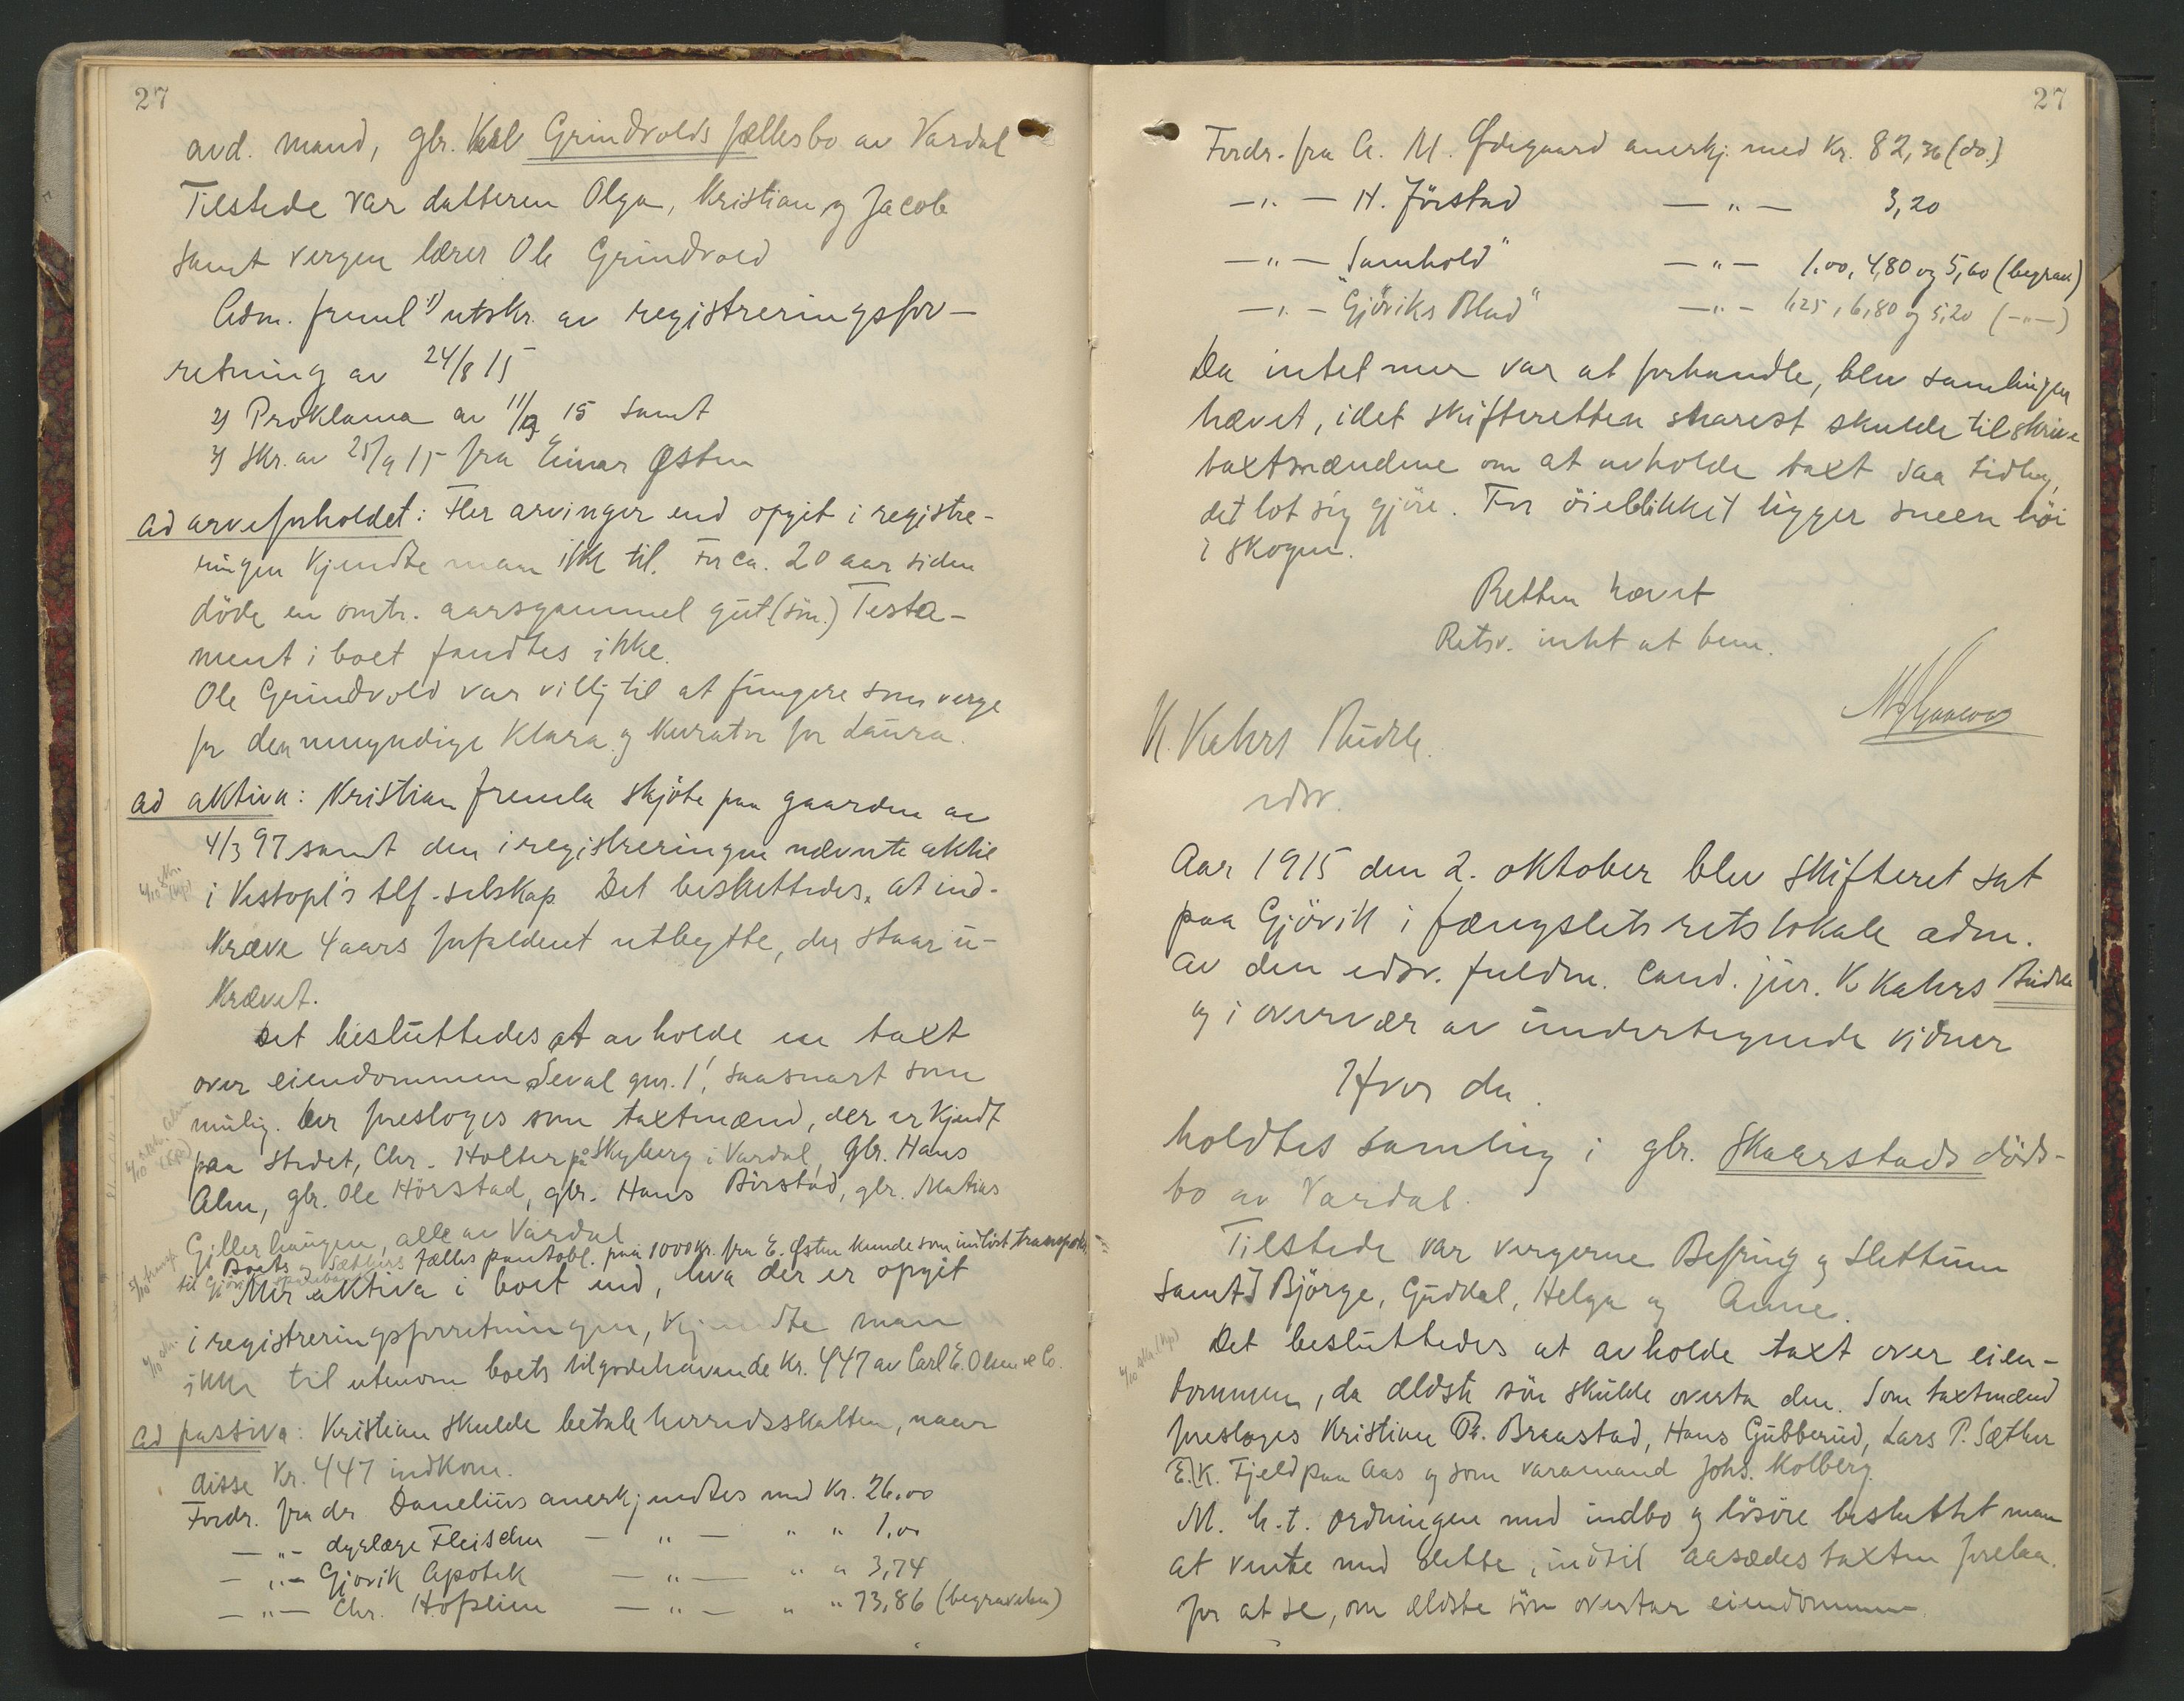 27
avd. mand, gbr. Karl Grindvolds fællesbo av Vardal
Tilstede var datteren Olga, Kristian og Jacob
samt vergen lærer Ole Grindvold
Adm. freml 1) utskr. av registreringsfor-
retning av 24/8 15
2) Proklama av 11/9 15 samt
3) Skr. av 25/9 15 fra Einar Østen
ad arveforholdet: Fler arvinger end opgit i registre-
ringen kjendte man ikke til. For ca. 20 aar siden
döde en omtr. aarsgammel gut (sön.) Testa-
ment i boet fandtes ikke.
Ole Grindvold var villig til at fungere som verge
for den umyndige Klara og kurator for Laura.
ad aktiva: Kristian fremla skjöte paa gaarden av
4/3 97 samt den i registreringen nævnte aktie
i Vestopl's tlf-selskap Det besluttedes, at ind-
kræve 4 aars forfaldent utbytte, der staar u-
krævet.
Det besluttedes at avholde en taxt
over eiendommen Seval gnr. 1, saasnart som
mulig. Der foresloges som taxtmænd, der er kjendt
paa stedet, Chr. Holter på Skyberg i Vardal, Gbr. Hans
Alm, gbr. Ole Hörstad, gbr. Hans Börstad, gbr. Matias
Gillerhaugen, alle av Vardal
Boets og Sæthers fælles pantobl. paa 1000 kr. fra E. Østen kunde som indlöst transporte-
til Gjövik
Mer aktiva i boet end, hva der er opgit
i registreringsforretningen, kjendte man
ikke til utenom boets tilgodehavende kr. 447 av Carl E. Olsen & Co.
ad passiva: Kristian skulde betale herredsskatten, naar
disse kr. 447 indkom.
Fordr. fra dr. Danelius anerkjendtes med kr. 26,00
— „ — dyrlæge Fleischer — „ — „ „ 1,00
— „ — Gjövik Apotek — „ — „ „ 3,74
— „ — Chr. Hofseim — „ — „ „ 73,86 (begravelsen)
27
Fordr. fra A. M. Ødegaard anerkj. med kr. 82,36 (do.)
— „ — H. Jörstad — „ — 3,20
— „ — "Samhold" — „ — 1,00, 4,80 og 5,60 (begrav.)
— „ — "Gjöviks Blad" — „ — 1,25, 6,80 og 5,20 (— „ —)
Da intet mer var at forhandle, blev samlingen
hævet, idet skifteretten snarest skulde tilskrive
taxtmændene om at avholde taxt saa tidlig,
det lot sig gjöre. For öieblikket ligger sneen höi
i skogen.
Retten hævet
Retsv. intet at bem.
K. Kahrs
edsv.
Aar 1915 den 2. oktober blev skifteret sat
paa Gjövik i fængslets retslokale adm.
av den edsv. fuldm. cand. jur. K Kahrs
og i overvær av undertegnede vidner
Hvor da
holdtes samling i gbr. Skaarstads döds-
bo av Vardal.
Tilstede var vergerne Befring og Slettum
samt Björge, Guddal, Helga og Anne.
Det besluttedes at avholde taxt over eien-
dommen, da ældste sön skulde overta den. Som taxtmænd
foresloges Kristian Pr. Braastad, Hans Gubberud, Lars P. Sæther
E. K. Fjeld paa Aas og som varamand Johs. Kolberg.
M. h. t. ordningen med indbo og lösöre besluttet man
at vente med dette, indtil aasædestaxten forelaa.
for at se, om ældste sön overtar eiendommen